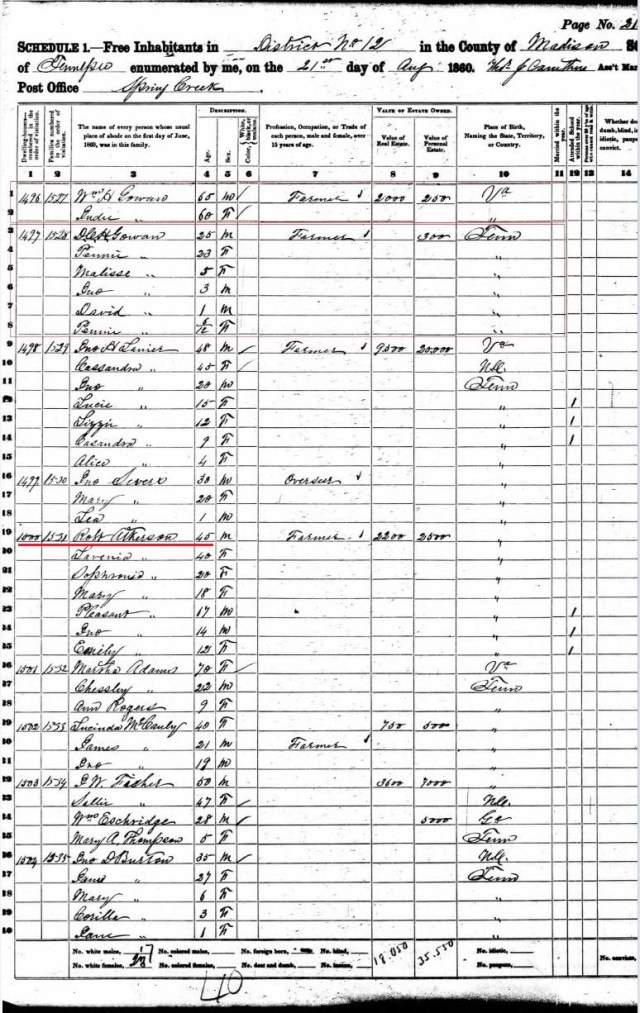 Page No. 21
SCHEDULE 1.—Free Inhabitants in District No 12 in the County of Madison
of Tennessee enumerated by me, on the 21st day of Aug 1860. Ass't Mar
Post Office Spring Creek
Dwelling-houses— numbered in the order of visitation. Families numbered in the order of visitation. The name of every person whose usual place of abode on the first day of June, 1860, was in this family. DESCRIPTION. Age. Sex. Color, White, black, or mulatto. Profession, Occupation, or Trade of each person, male and female, over 15 years of age. VALUE OF ESTATE OWNED. Value of Real Estate. Value of Personal Estate. Place of Birth, Naming the State, Territory, or Country. Married within the year. Attended School within the year. Whether deaf and dumb, blind, insane, idiotic, pauper or convict.
1 2 3 4 5 6 7 8 9 10 11 12 13 14
1 1496 1527 Wm H Gowan 65 m Farmer 2000 250 Va
2 60 F "
3 1497 1528 Gowan 25 m Farmer 300 Tenn
4 Pennie " 23 F "
5 Malisse " 5 F "
6 Jno " 3 m "
7 David " 1 m "
8 Pennie " 6/12 F "
9 1498 1529 Jno H Lanier 48 m Farmer 9500 20,000 Va
10 Cassandra " 45 F N.C.
11 Jno " 20 m Tenn
12 Lucie " 15 F " 1
13 Lizzie " 12 F " 1
14 Casandra " 9 F " 1
15 Alice " 4 F "
16 1499 1530 Jno 30 m Overseer "
17 Mary " 20 F "
18 " 1 m "
19 1500 1531 Robt Atkerson 45 m Farmer 2200 2500 "
20 Lavenia " 40 F "
21 Sophronia " 20 F "
22 Mary " 18 F "
23 Pleasant " 17 m " 1
24 Jno " 14 m " 1
25 Emily " 12 F " 1
26 1501 1532 Martha Adams 70 F Va
27 Chessley " 22 m Tenn
28 Ann Rogers 9 F "
29 1502 1533 Lucinda McCauly 40 F 750 500 "
30 James " 21 m Farmer "
31 Jno " 19 m "
32 1503 1534 W. Fisher 50 m 3600 7000 "
33 Sallie " 47 F N.C.
34 Wm Eschridge 28 m 5000 Ga
35 Mary A. Thompson 5 F Tenn
36 1504 1535 Jno D Burton 35 m N.C.
37 Jane " 27 F Tenn
38 Mary " 6 F "
39 Corilla " 3 F "
40 Jane " 1 F "
No. white males, 17 No. colored males, No. foreign born, No. blind, 18.050 35.550 No. idiotic, No. convicts,
No. white females, 23 No. colored females, No. deaf and dumb, No. insane, No. paupers,
40